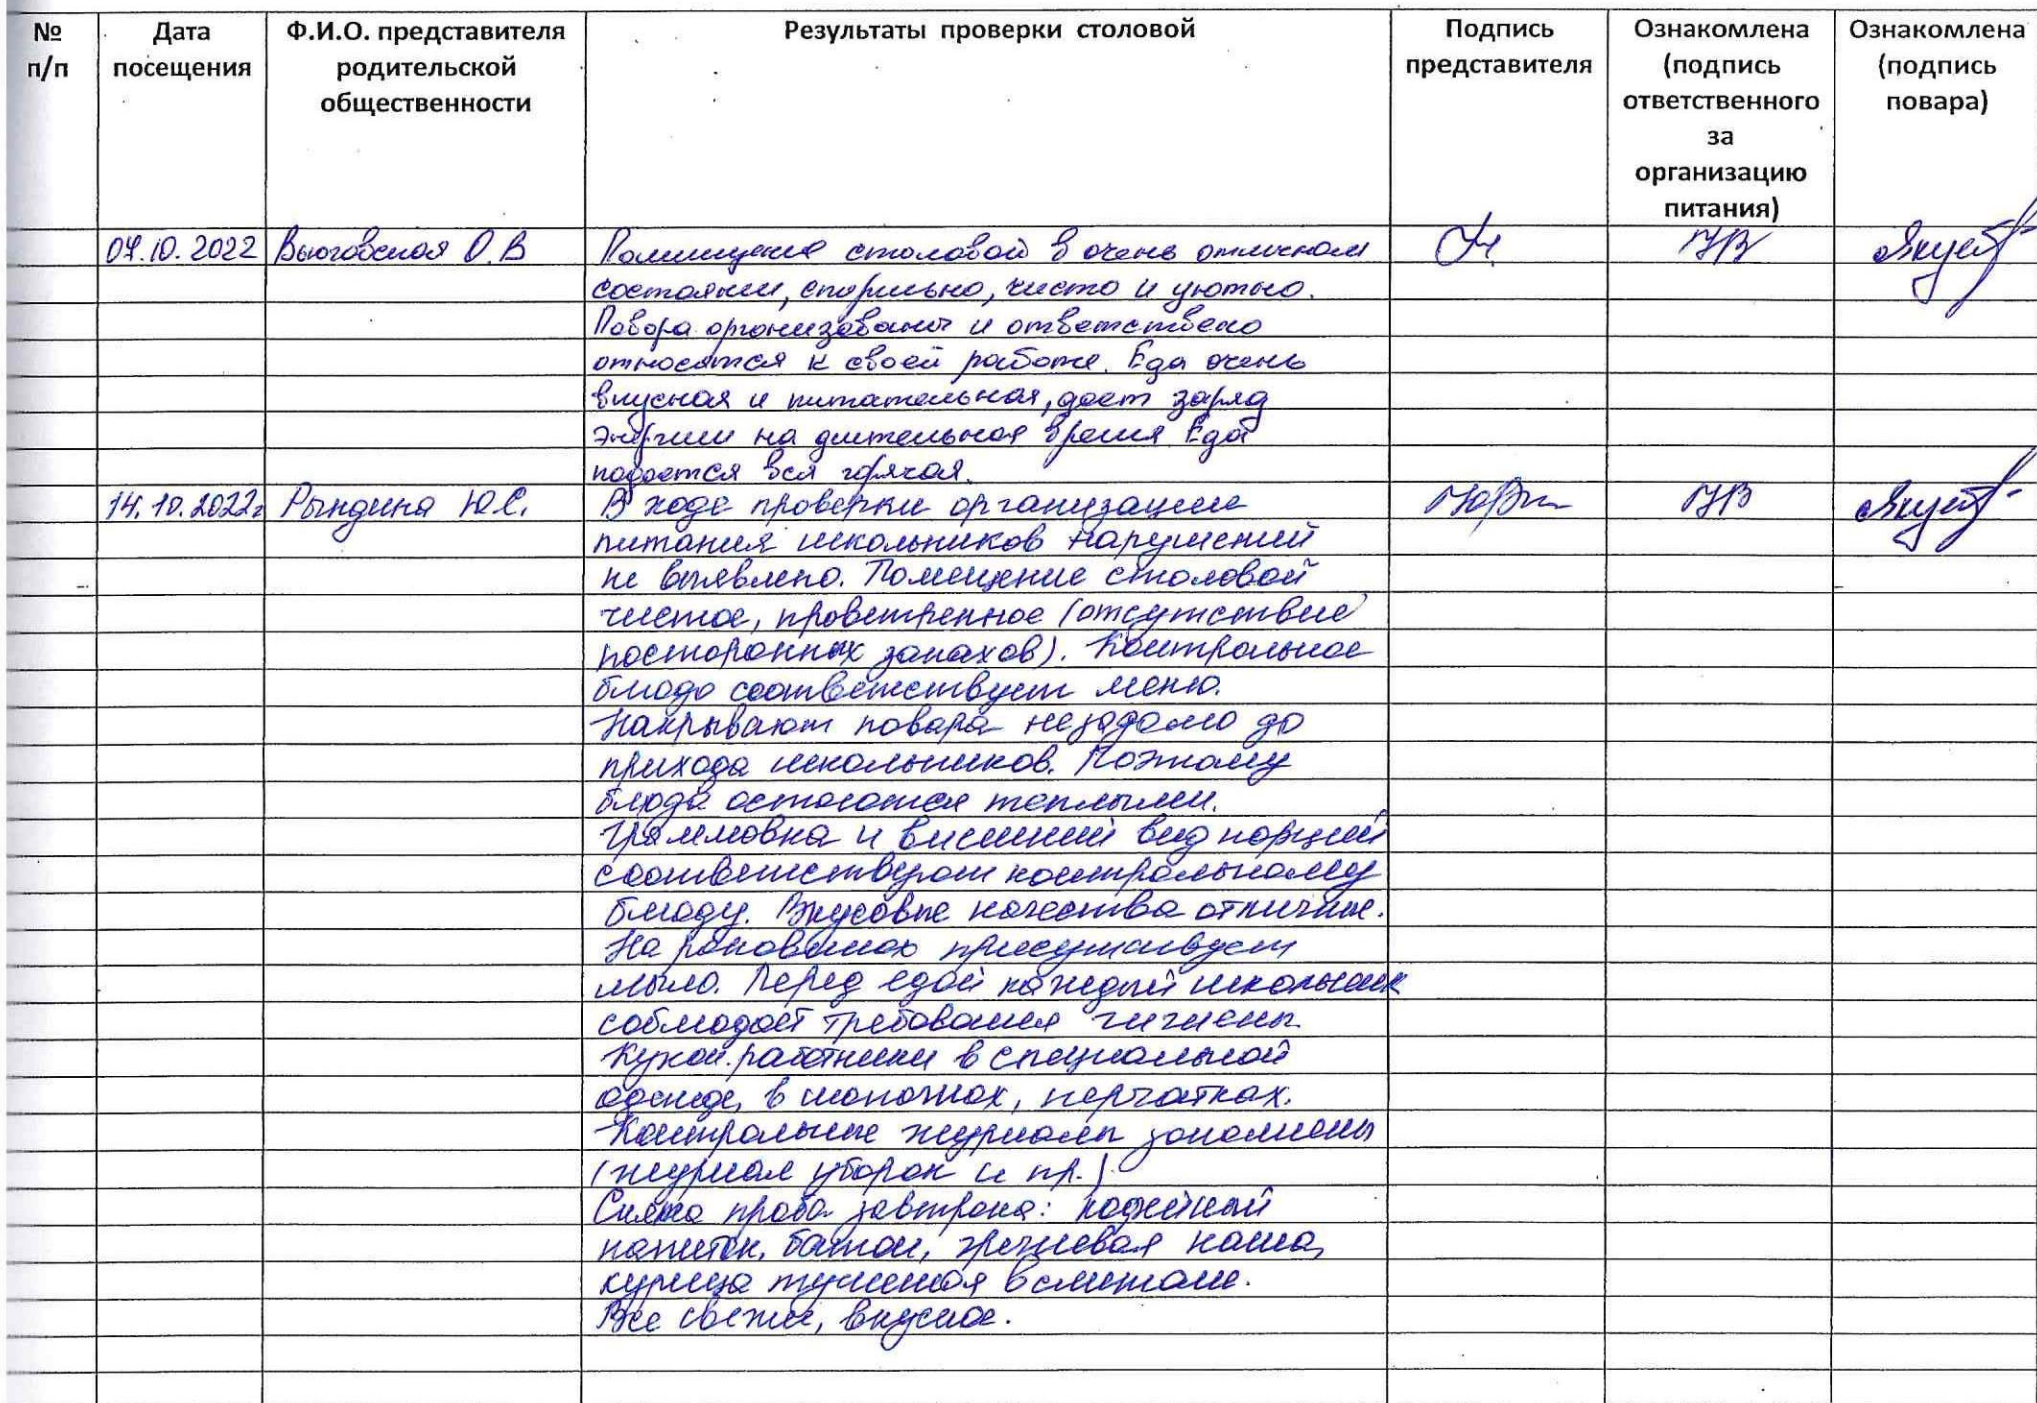 № п/п
Дата посещения
Ф.И.О. представителя родительской общественности
Результаты проверки столовой
Подпись представителя
Ознакомлена (подпись ответственного за организацию питания)
Ознакомлена (подпись повара)
07.10.2022 Вьюговская О.В Помищение столовой в очень отличном
состоянии, стирильно, чисто и уютно.
Повора организованы и ответствено
относятся к своей работе. Еда очень
вкусная и питательная, дает заряд
энергии на длительная время Еда
подается вся горячая.
14.10.2022г Рындина Ю.С. В ходе проверки организации
питания школьников нарушений
не выявлено. Помещение столовой
чистое, проветренное (отсутствие
посторонних запахов). Контрольное
блюдо соответствует меню.
Накрывают повара незадолго до
прихода школьников. Поэтому
блюда остаются теплыми.
Граммовка и внешний вид порций
соответствуют контрольному
блюду. Вкусовые качества отличные.
На раковинах присутствует
мыло. Перед едой каждый школьник
соблюдает требования гигиены.
Кухон. работники в специальной
одежде, в шапочках, перчатках.
Контрольные журналы заполнены
(журнал уборок и пр.)
Снята проба завтрака: кофейный
напиток, батон, гречневая каша,
курица тушеная в сметане.
Все свежее, вкусное.